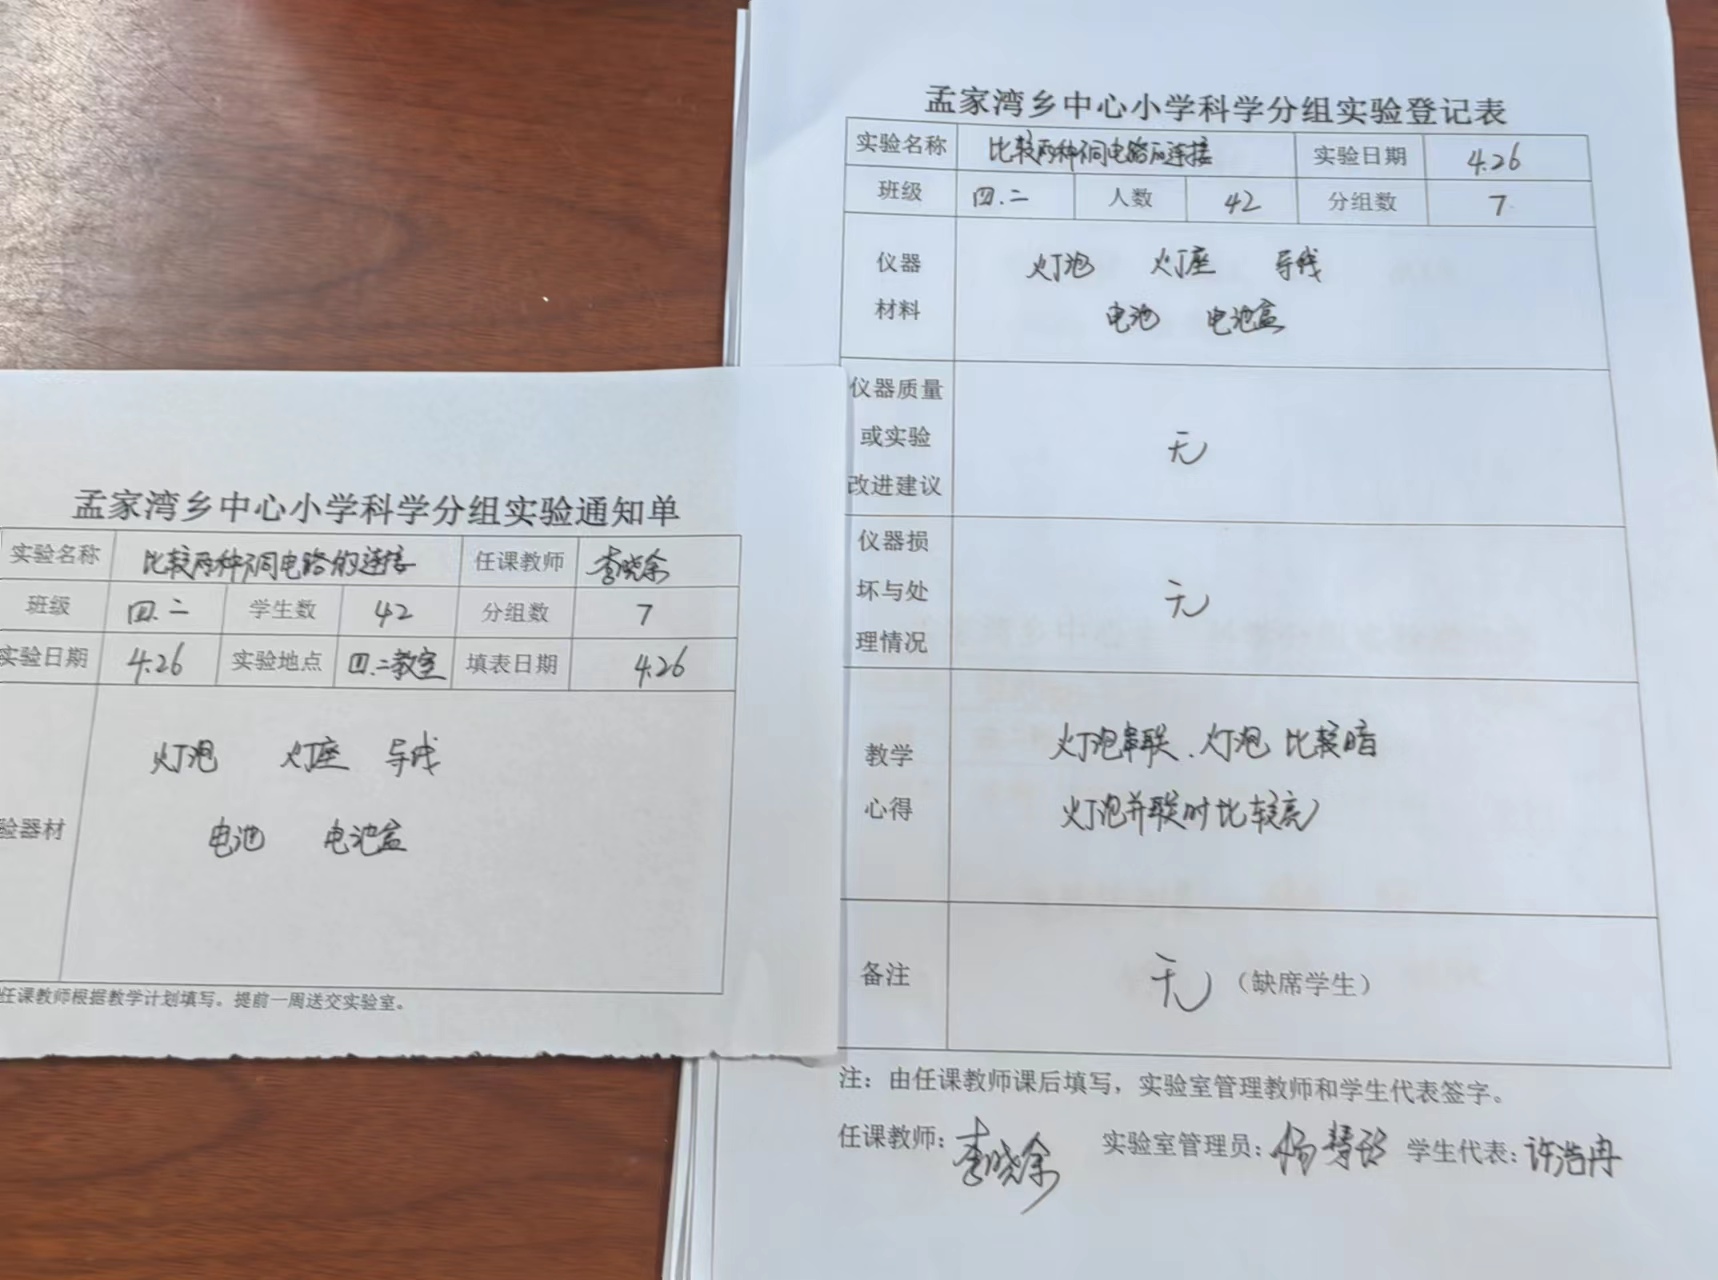 孟家湾乡中心小学科学分组实验通知单
实验名称 比较两种不同电路的连接 任课教师 李晓余
班级 四.二 学生数 42 分组数 7
实验日期 4.26 实验地点 四.二教室 填表日期 4.26
验器材
灯泡 灯座 导线
电池 电池盒
任课教师根据教学计划填写。提前一周送交实验室。
孟家湾乡中心小学科学分组实验登记表
实验名称 比较两种不同电路的连接 实验日期 4.26
班级 四.二 人数 42 分组数 7
仪器
材料
灯泡 灯座 导线
电池 电池盒
仪器质量
或实验
改进建议
无
仪器损
坏与处
理情况
无
教学
心得
灯泡串联、灯泡比较暗
灯泡并联时比较亮
备注 无（缺席学生）
注：由任课教师课后填写，实验室管理教师和学生代表签字。
任课教师：李晓余 实验室管理员：杨 学生代表：许浩冉